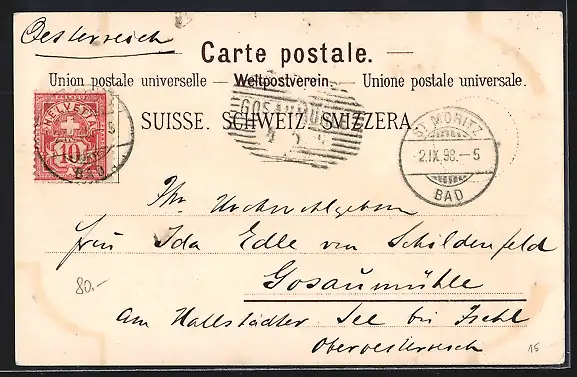 Oesterreich
Carte postale.
Union postale universelle — Weltpostverein. — Unione postale universale.
SUISSE. SCHWEIZ. SVIZZERA.
HELVETIA
10
BAD
GOSAUMÜHLE
ST. MORITZ
2.IX.98.–5
BAD
Ihr Hochwohlgeboren
Frau Ida Edle von Schildenfeld
Gosaumühle
am Hallstädter See bei Ischl
Oberoesterreich
80.-
15